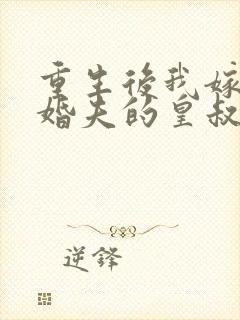 重生後我嫁
婚夫的皇叔
逆鋒